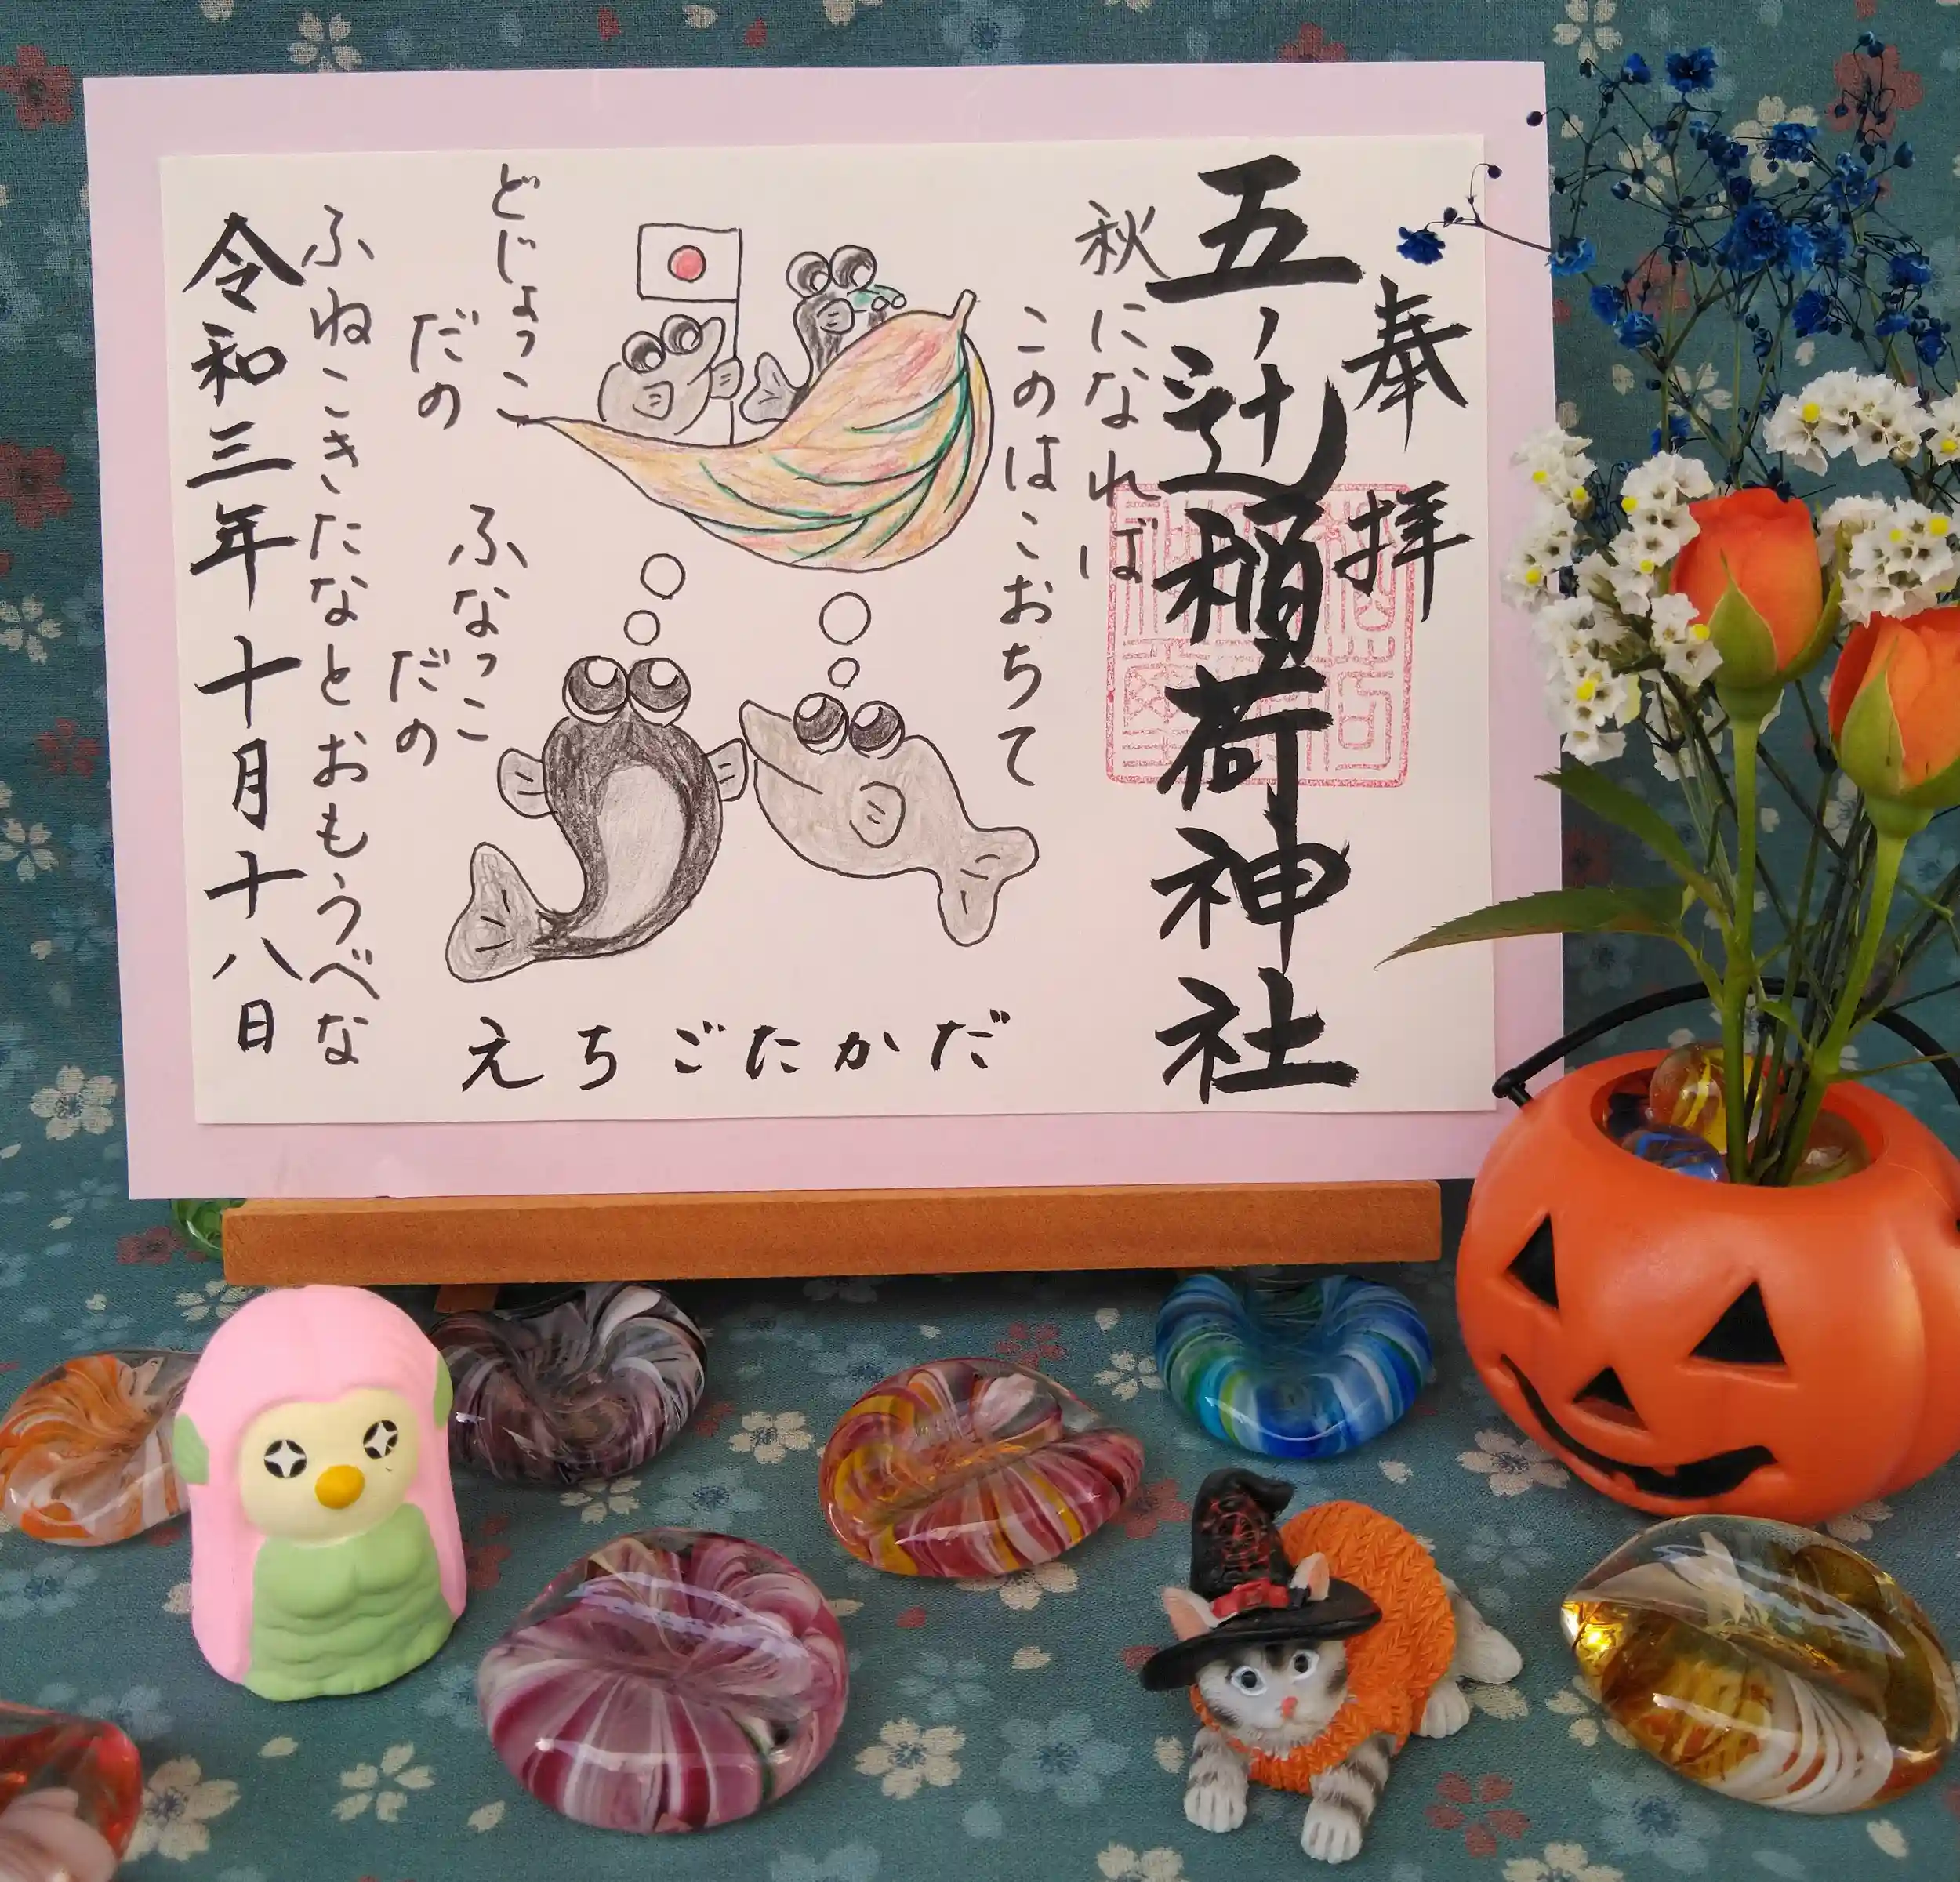 奉拝
五ノ辻稲荷神社
秋になれば
このはこおちて
どじょっこ
だの
ふなっこ
だの
ふねこきたなとおもうべな
令和三年十月十八日
えちごたかだ